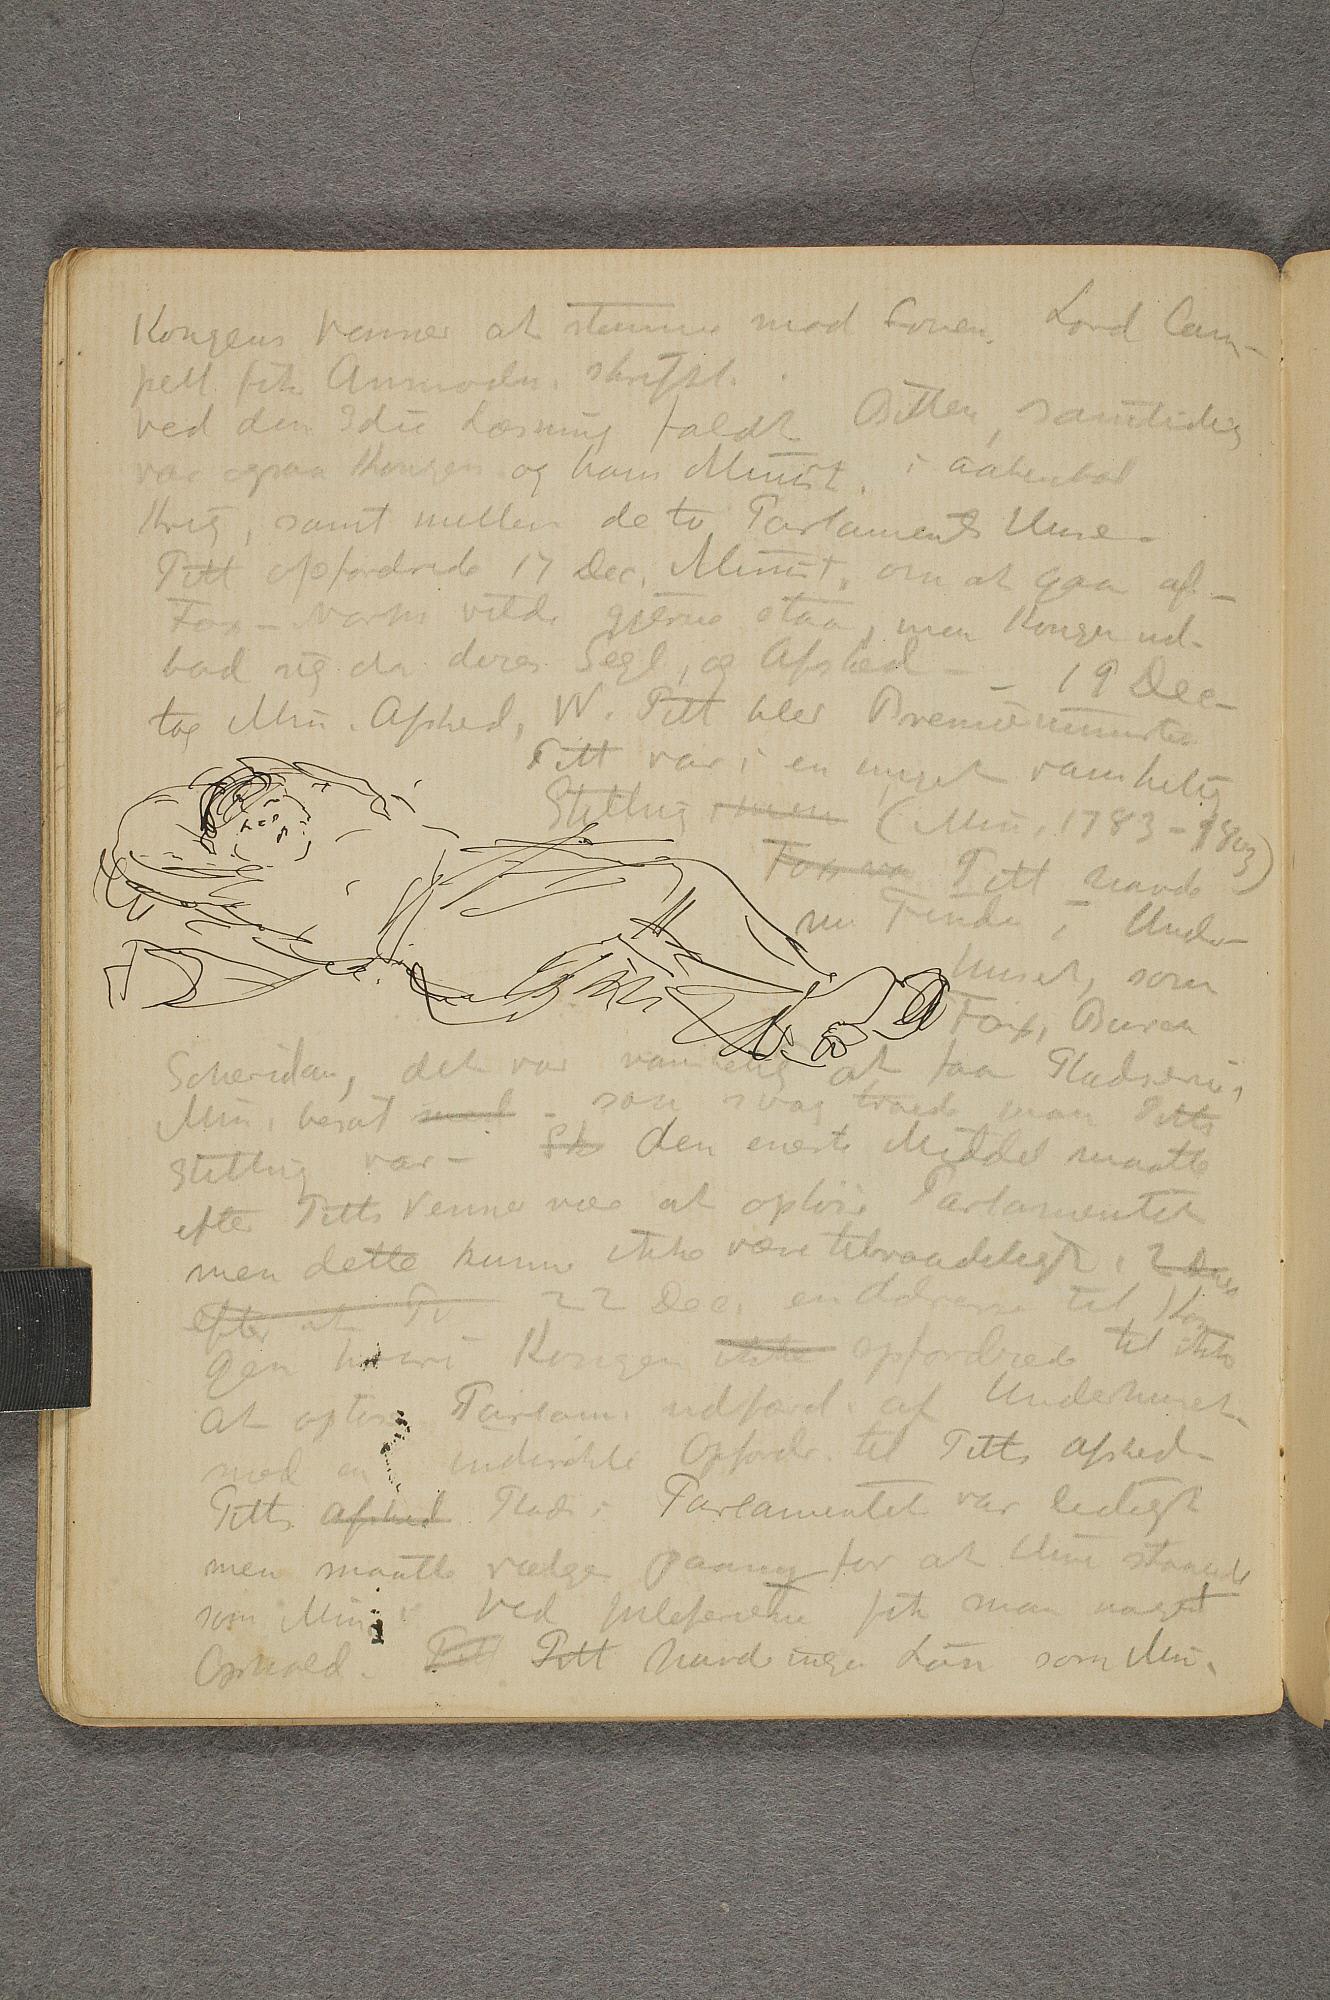 Kongens Venner at stemme mod Loven. Lord Cam-
pell fik Anmodn. skriftl.
ved den 3die Læsning faldt Billen, samtidig
var ogsaa Kongen og hans Minist. i aabenbar
Krig, samt mellem de to Parlaments Huse -
Pitt opfordrede 17 Dec. Minist. om at gaa af -
Fox - North vilde gjerne staa, men Kongen ud-
bad sig da deres Segl, og Afsked - - 19 Dec -
tog Min. Afsked, W. Pitt blev Premierminister
Pitt var i en meget vanskelig
Stilling men (Min. 1783 - 1803)
Fox va Pitt havde
nu Fiender i Under-
huset, som
Fox, Burck
Scheridan, det var vanskelig at faa Pladserne i
Min. besat med - saa svag troede man Pitts
Stilling var - den eneste Middel maatte
efter Pitts Venner være at opløse Parlamentet
men dette kunne ikke være tilraadeligt. 2 Dec
efter at Pi 22 Dec. en Adresse til Kon
gen hvori Kongen ikke opfordrede til ikke
at opløse Parlam. udfærd. af Underhuset -
med en indirekte Opfordr. til Pitts Afsked -
Pitts Afsked Plads i Parlamentet var ledigt
men maatte vælges paany for at kunne staaende
som Min. Ved Juleferierne fik man noget
Ophold. Pitt Pitt havde ingen Løn som Min.